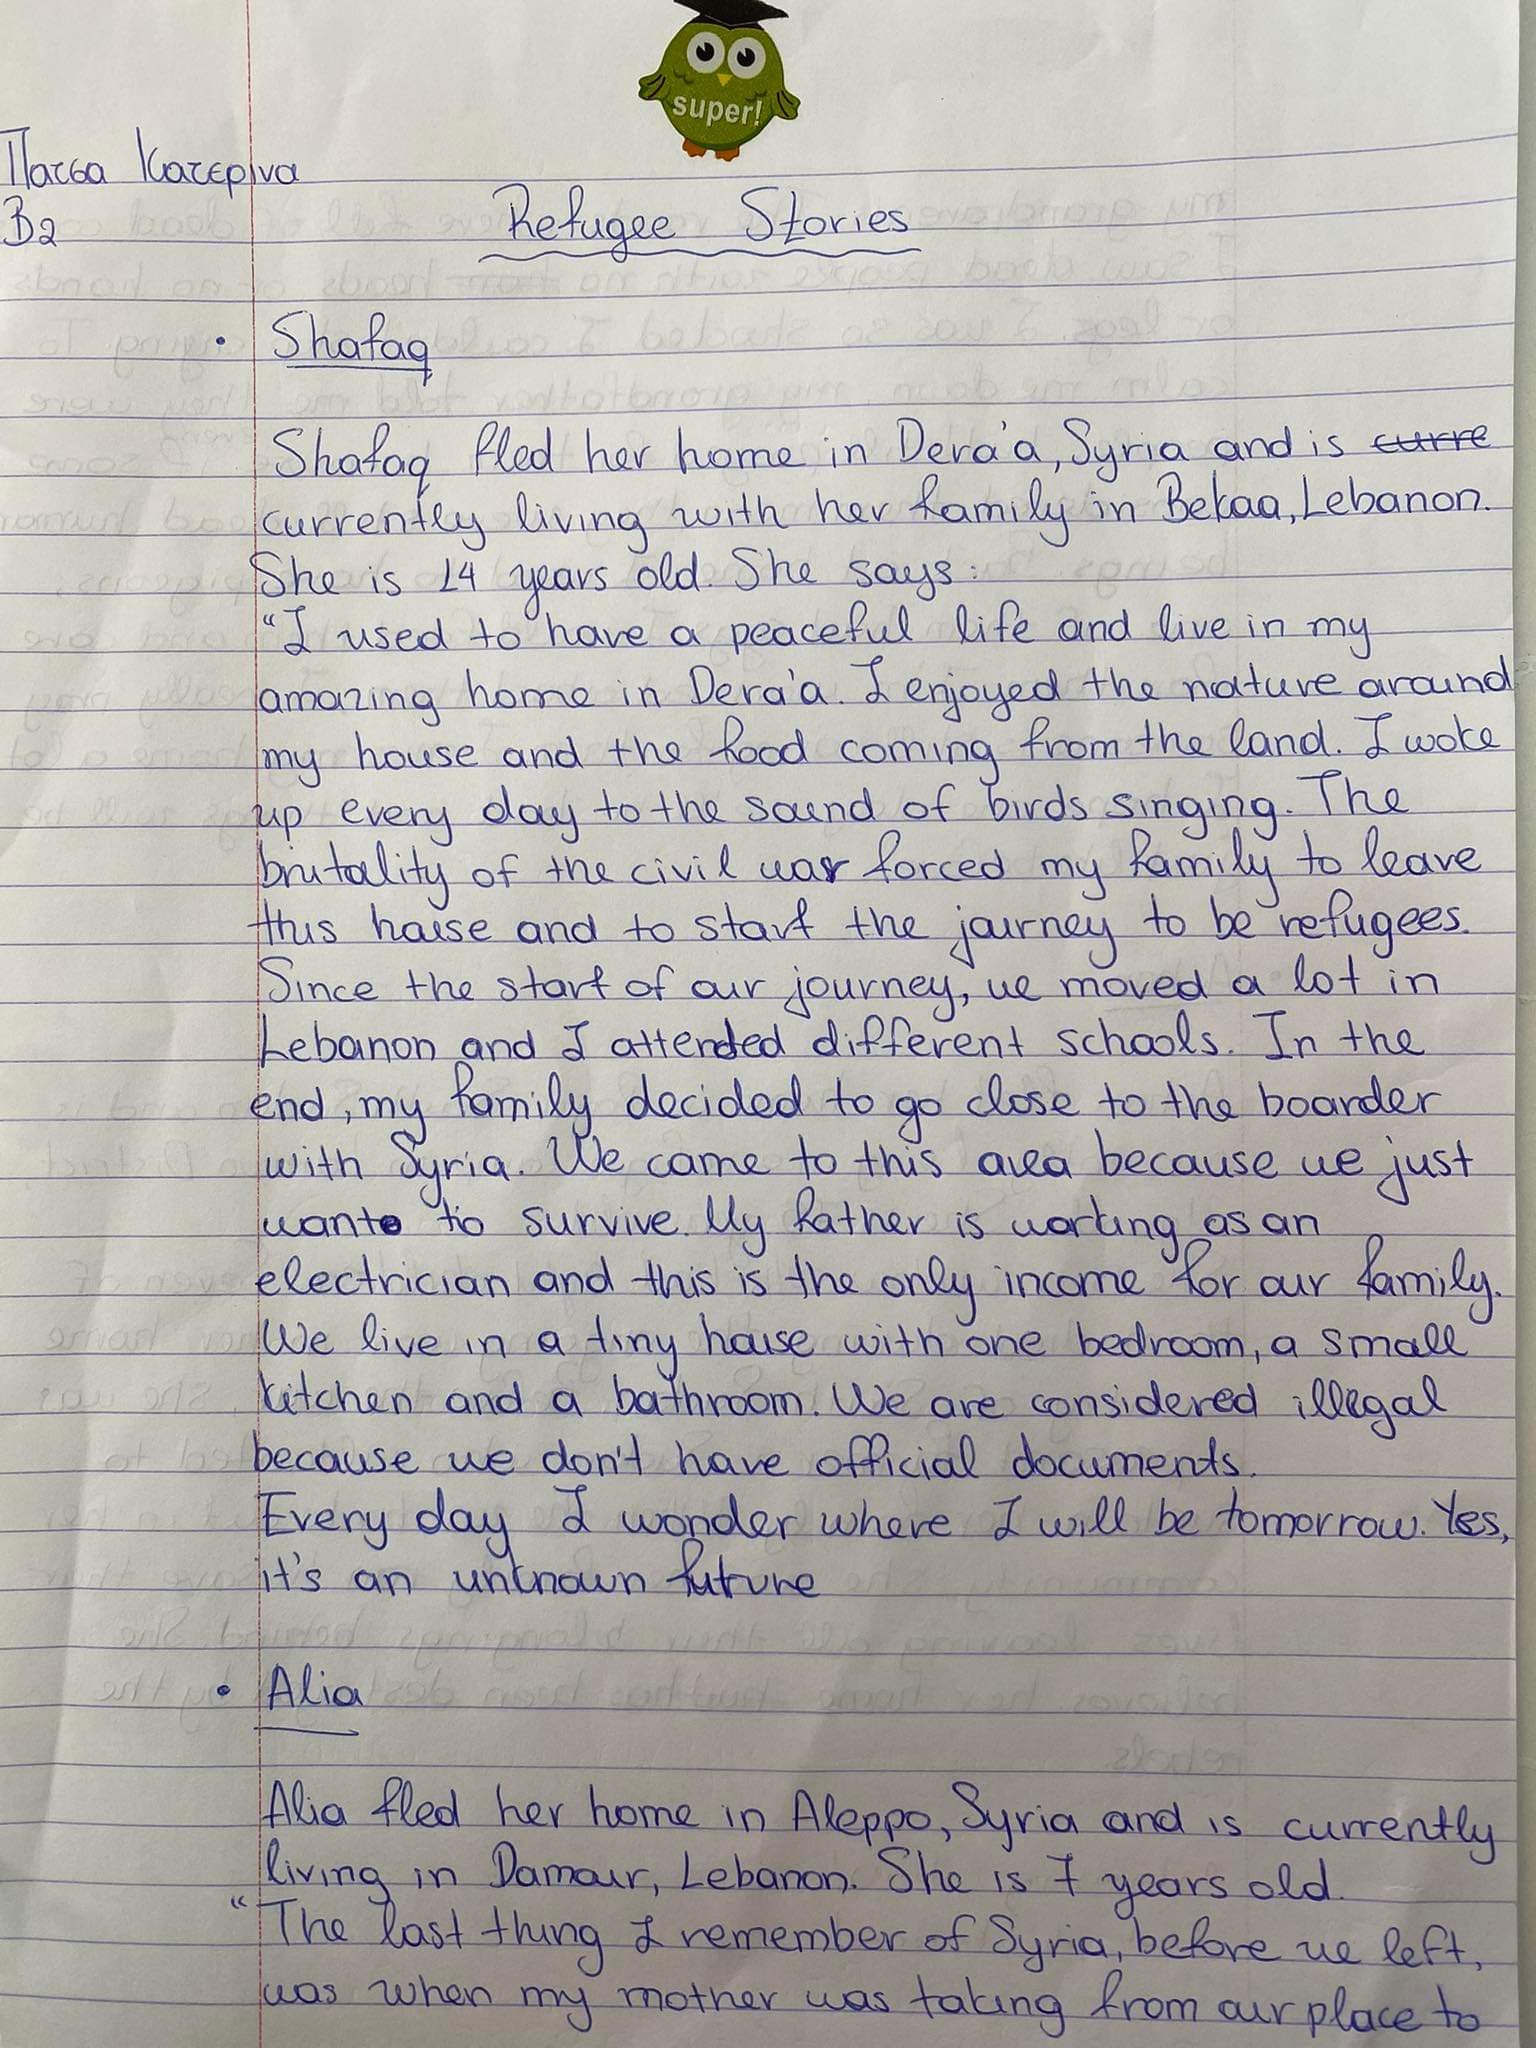 super!
Πατσα Κατερίνα
B2
Refugee Stories
• Shafaq
Shafaq fled her home in Dera'a, Syria and is curre
currently living with her family in Bekaa, Lebanon.
She is 14 years old. She says:
"I used to have a peaceful life and live in my
amazing home in Dera'a. I enjoyed the nature around
my house and the food coming from the land. I woke
up every day to the sound of birds singing. The
brutality of the civil war forced my family to leave
this house and to start the journey to be refugees.
Since the start of our journey, we moved a lot in
Lebanon and I attended different schools. In the
end, my family decided to go close to the boarder
with Syria. We came to this area because we just
want to survive. My father is working as an
electrician and this is the only income for our family.
We live in a tiny house with one bedroom, a small
kitchen and a bathroom. We are considered illegal
because we don't have official documents.
Every day I wonder where I will be tomorrow. Yes,
it's an unknown future
• Alia
Alia fled her home in Aleppo, Syria and is currently
living in Damour, Lebanon. She is 7 years old.
"The last thing I remember of Syria, before we left,
was when my mother was taking from our place to